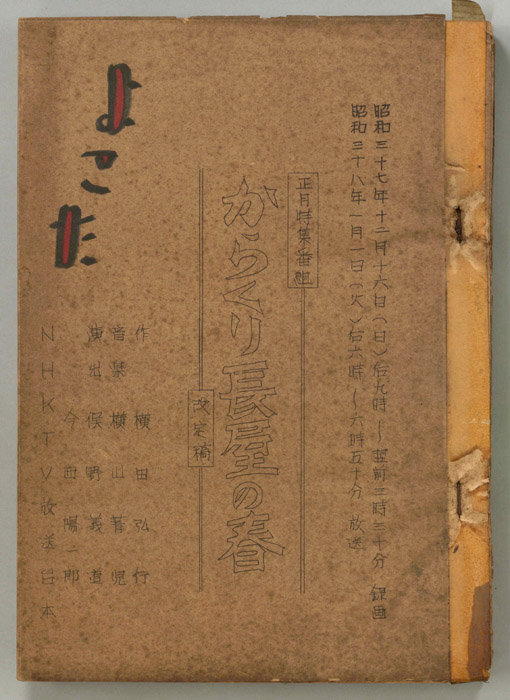 昭和三十七年十二月十六日(日)后九時〜翌前三時三十分 録画
昭和三十八年一月一日(火)后六時〜六時五十分 放送
正月特集番組
からくり長屋の春
改定稿
よこた
作 横田弘行
音楽 横山菁児
演出 俣野義道
今西陽一郎
NHKTV放送台本